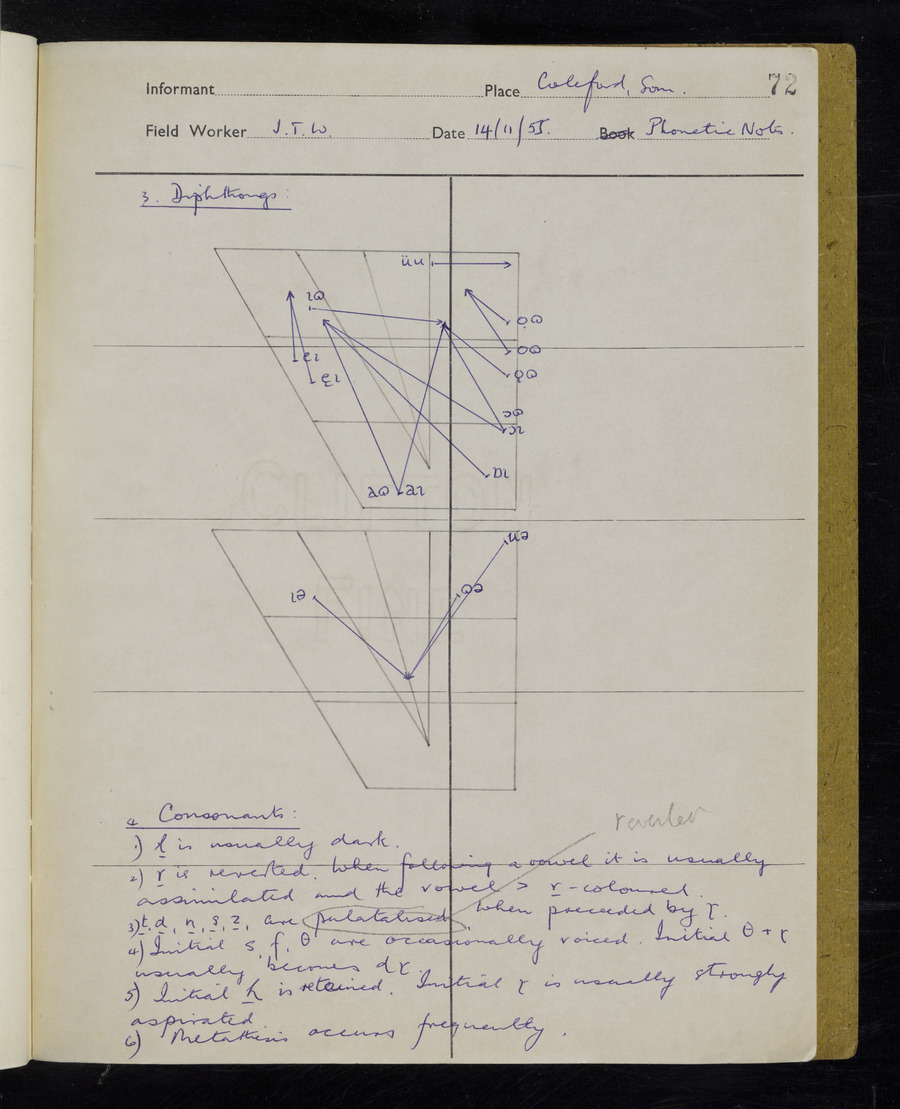 Informant Place Coleford, Som. 72
Field Worker J.T.W. Date 14/11/55. Book Phonetic Notes.
3. Diphthongs:
üu
ɩɷ
oɷ
ɛɩ
ɔɷ
ɔɩ
ɒɩ
aɷ aɩ
uə
ɩə
ɷə
4. Consonants:
reverted
1) ɫ is usually dark.
2) r is reverted. When following a vowel it is usually
assimilated and the vowel > r-coloured.
3) t, d, n, s, z, are palatalised when preceded by r.
4) Initial s, f, θ are occasionally voiced. Initial θ + r
usually becomes dr.
5) Initial h is retained. Initial r is usually strongly
aspirated
6) Metathesis occurs frequently.